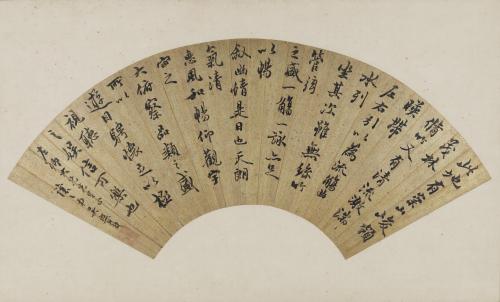 此地有崇山峻領
茂林
脩竹又有清流激湍
暎帶
左右引以為流觴曲
水列
坐其次雖無絲竹
管弦
之盛一觴一詠亦足
以暢
敘幽情是日也天朗
氣清
惠風和暢仰觀宇
宙之
大俯察品類之盛
所以
遊目騁懷足以極
視聽
之娛信可樂也